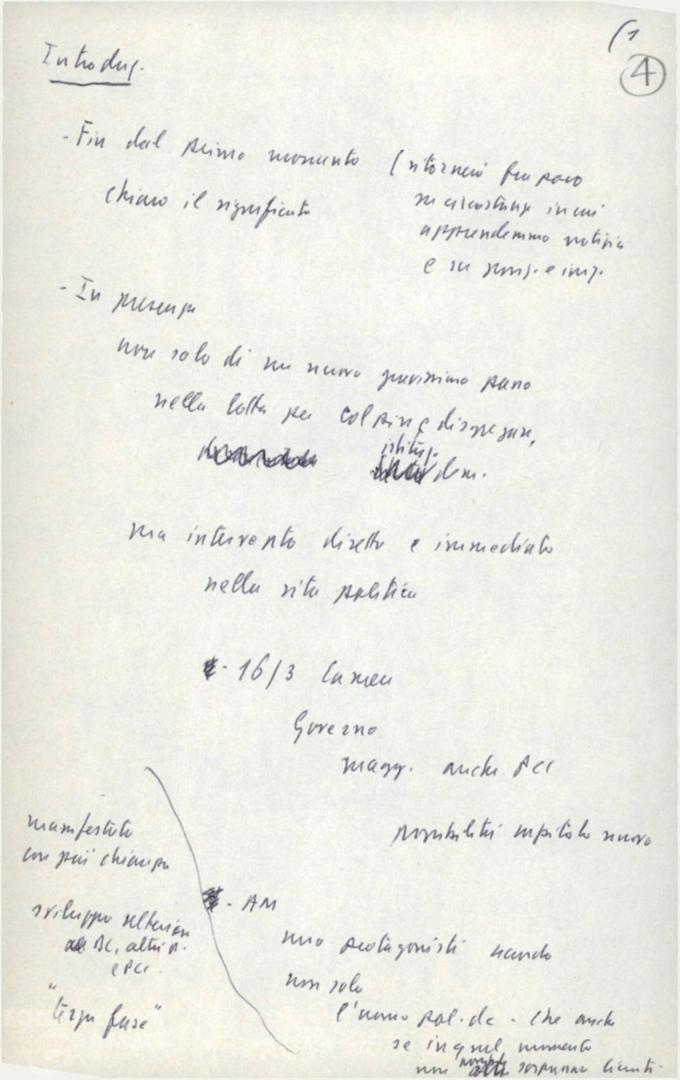 (1
4
Introduz.
- Fin dal primo momento
chiaro il significato
(ritornerò fra poco
su circostanze in cui
apprendemmo notizia
e su
- In presenza
non solo di un nuovo gravissimo passo
nella lotta per colpire e disgregare
istituz.
dem.
ma intervento diretto e immediato
nella vita politica
- 16/3 Camera
Governo
magg. anche PCI
possibilità capitolo nuovo
manifestato
con più chiarezza
sviluppo ulteriore
DC, altri p.
e PCI.
"terza fase"
- AM
uno protagonisti
non solo
l'uomo pol. dc - che anche
se in quel momento
non